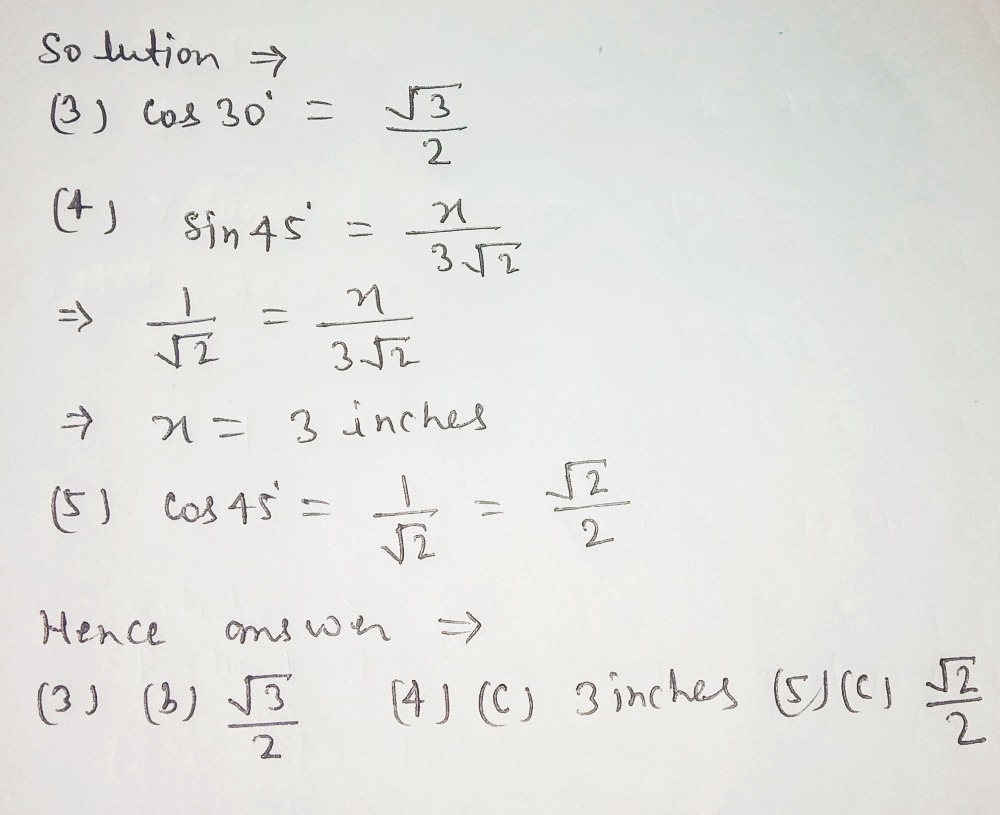 Solution ⇒
(3) cos 30° = √3/2
(4) sin 45° = x/3√2
⇒ 1/√2 = x/3√2
⇒ x = 3 inches
(5) cos 45° = 1/√2 = √2/2
Hence answer ⇒
(3) (b) √3/2 (4) (c) 3 inches (5) (c) √2/2